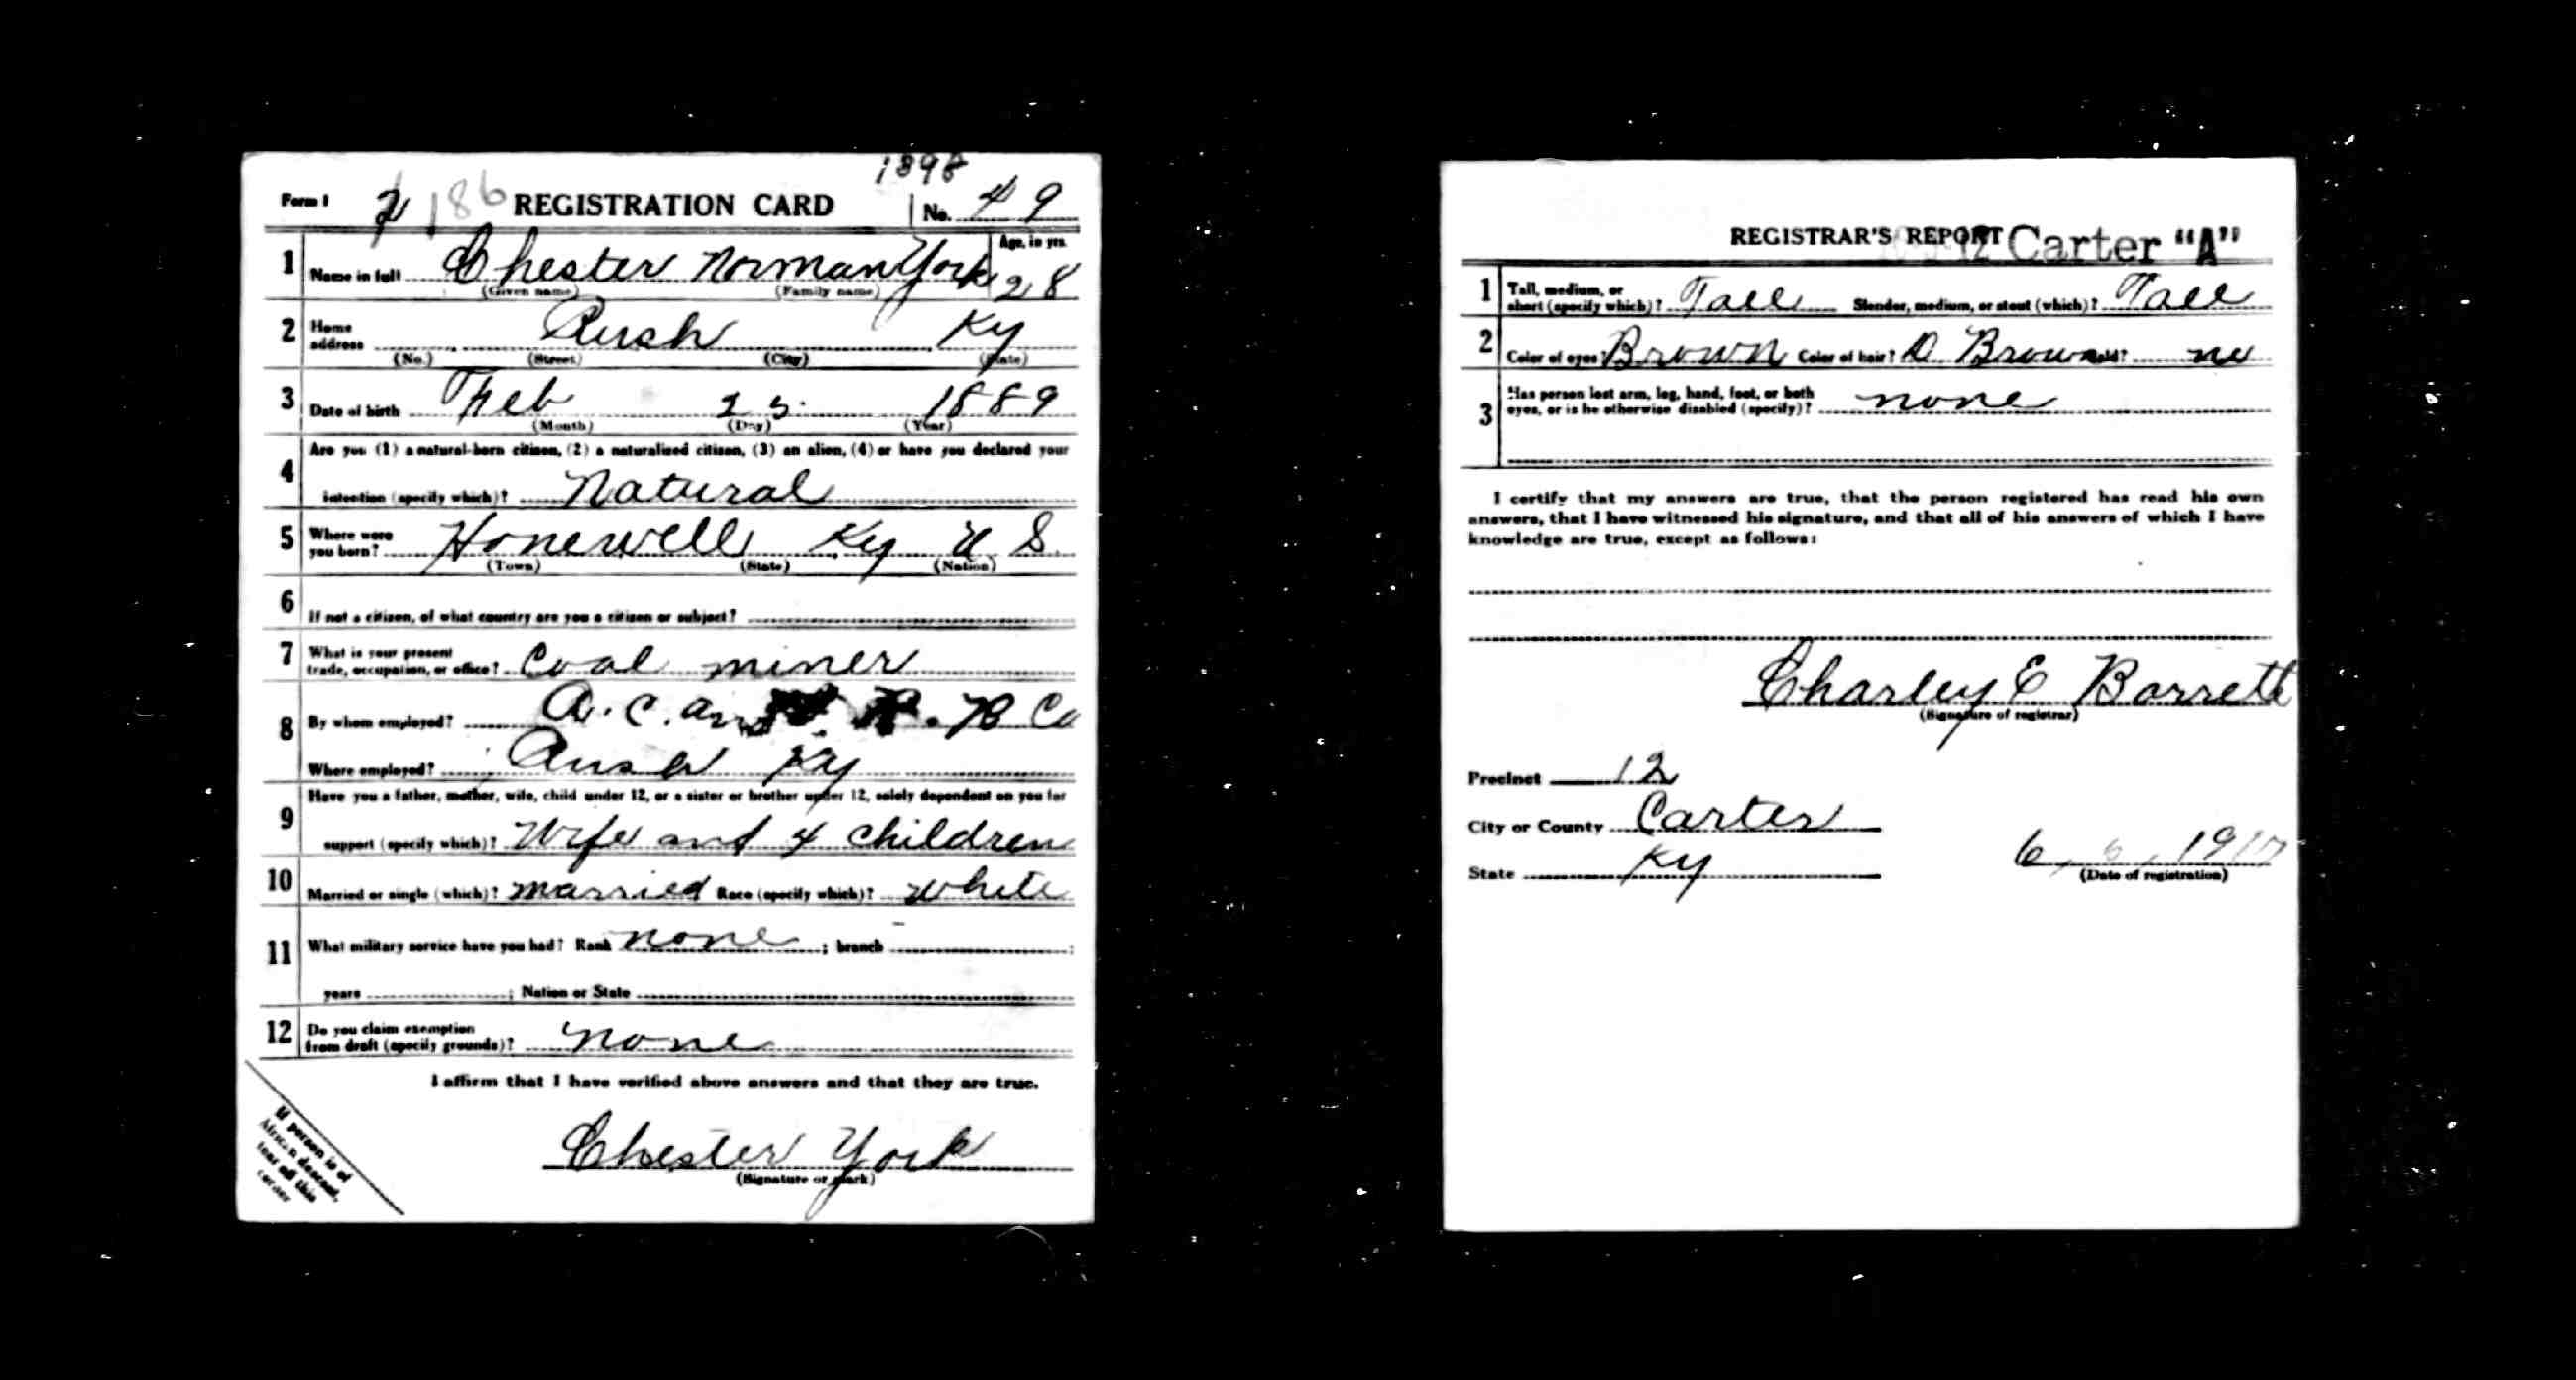 1898
Form 1 2 186 REGISTRATION CARD No. 49
1 Name in full Chester Norman York Age, in yrs. 28
(Given name) (Family name)
2 Home address Rush Ky
(No.) (Street) (City) (State)
3 Date of birth Feb 23 1889
(Month) (Day) (Year)
4 Are you (1) a natural-born citizen, (2) a naturalized citizen, (3) an alien, (4) or have you declared your
intention (specify which)? Natural
5 Where were you born? Honewell Ky U.S.
(Town) (State) (Nation)
6 If not a citizen, of what country are you a citizen or subject?
7 What is your present trade, occupation, or office? Coal miner
8 By whom employed? A. C. and B Co
Where employed? Rush Ky
9 Have you a father, mother, wife, child under 12, or a sister or brother under 12, solely dependent on you for
support (specify which)? Wife and 4 children
10 Married or single (which)? married Race (specify which)? White
11 What military service have you had? Rank none ; branch ;
years ; Nation or State
12 Do you claim exemption from draft (specify grounds)? none
I affirm that I have verified above answers and that they are true.
Chester York
(Signature or mark)
If person is of
African descent,
tear off this
corner
REGISTRAR'S REPORT 12 Carter "A"
1 Tall, medium, or short (specify which)? Tall Slender, medium, or stout (which)? Tall
2 Color of eyes? Brown Color of hair? D Brown Bald? no
3 Has person lost arm, leg, hand, foot, or both
eyes, or is he otherwise disabled (specify)? none
I certify that my answers are true, that the person registered has read his own
answers, that I have witnessed his signature, and that all of his answers of which I have
knowledge are true, except as follows:
Charley E Barrett
(Signature of registrar)
Precinct 12
City or County Carter
State Ky
6, 6, 1917
(Date of registration)